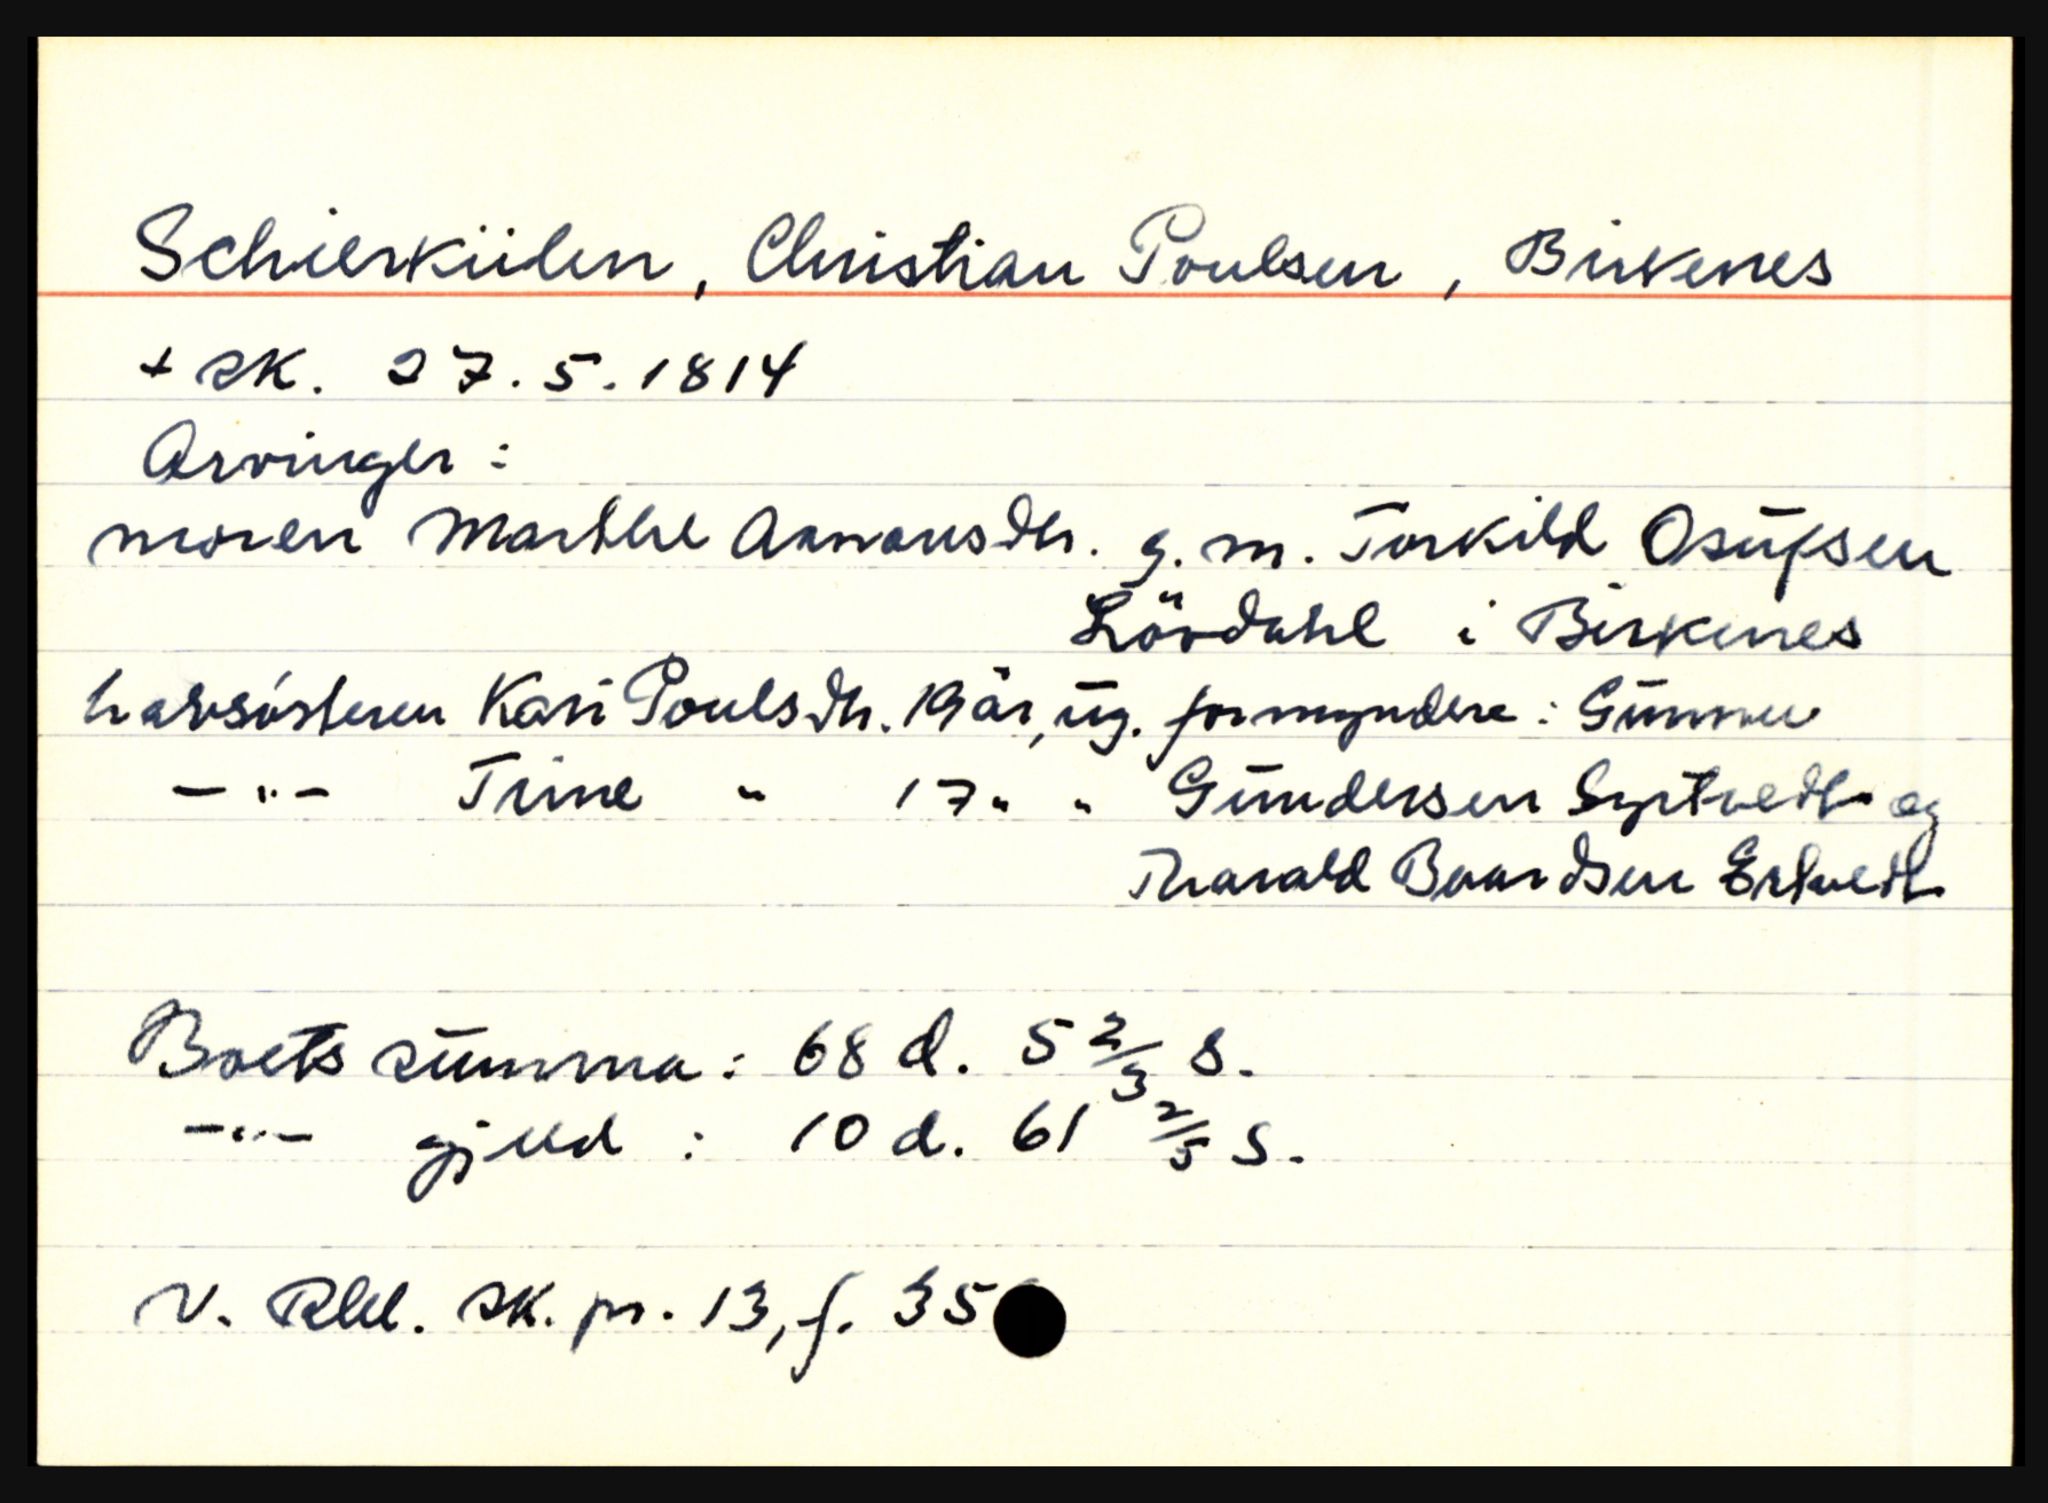 Schierkülen, Christian Poulsen, Birkenes
+ sk. 27.5.1814
Arvinger:
moren Marthe Aanonsdtr. g.m. Torkild Osūfsen
Lövdahl i Birkenes
halvsösteren Kari Poulsdtr. 19 år, ūg. formyndere: Gūnne
-"- Trine " 17 " " Gūndersen Syrtvedt og
Tharald Baardsen Ertvedt
Boets sūmma: 68 d. 5 2/3 s.
-"- gjeld: 10 d. 61 2/5 s.
N. Rbl. sk. pr. 13, f. 35